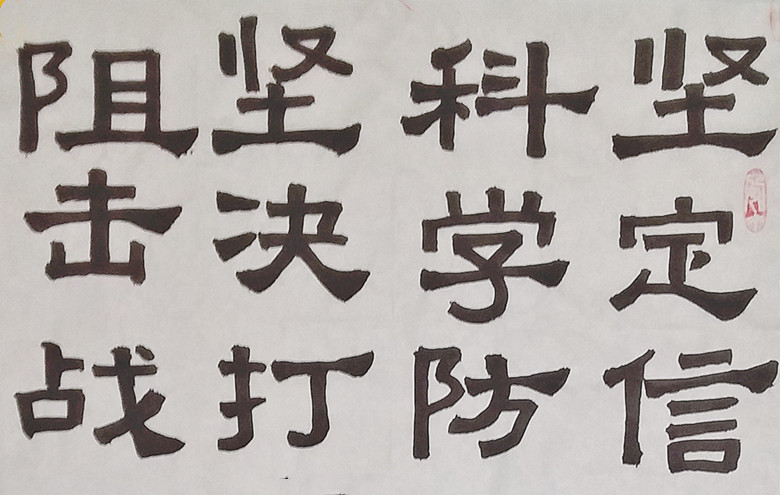 坚定信
科学防
坚决打
阻击战